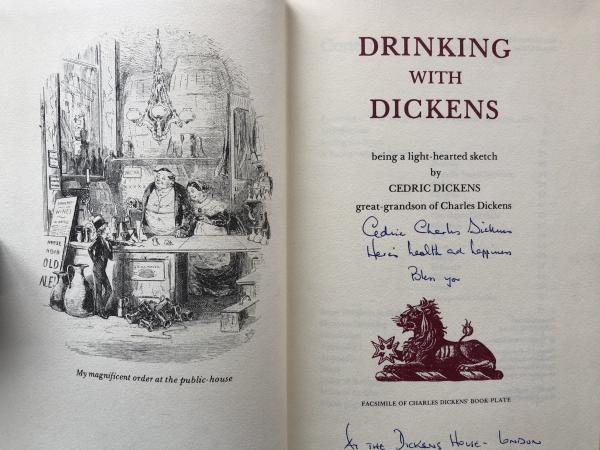 WINE
OLD
ALE
My magnificent order at the public-house
DRINKING
WITH
DICKENS
being a light-hearted sketch
by
CEDRIC DICKENS
great-grandson of Charles Dickens
Cedric Charles Dickens
Here's health and happiness
Bless you
FACSIMILE OF CHARLES DICKENS' BOOK-PLATE
At THE DICKENS HOUSE - LONDON